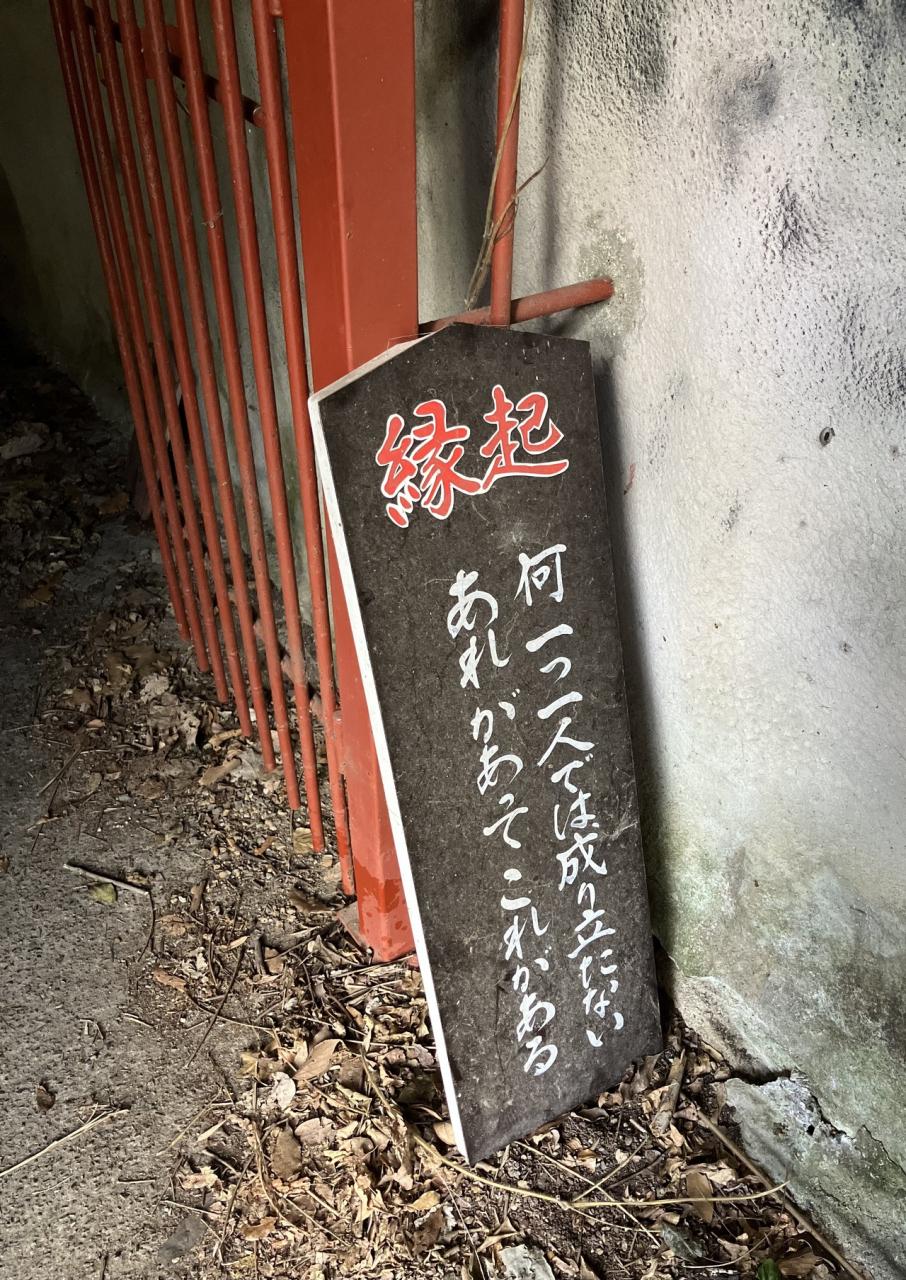 縁起
何一つ一人では成り立たない
あれがあってこれがある